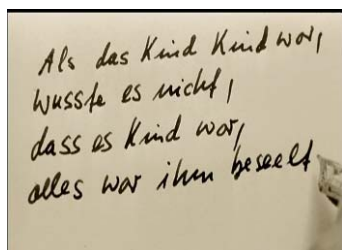 Als das Kind Kind war,
wusste es nicht,
dass es Kind war,
alles war ihm beseelt